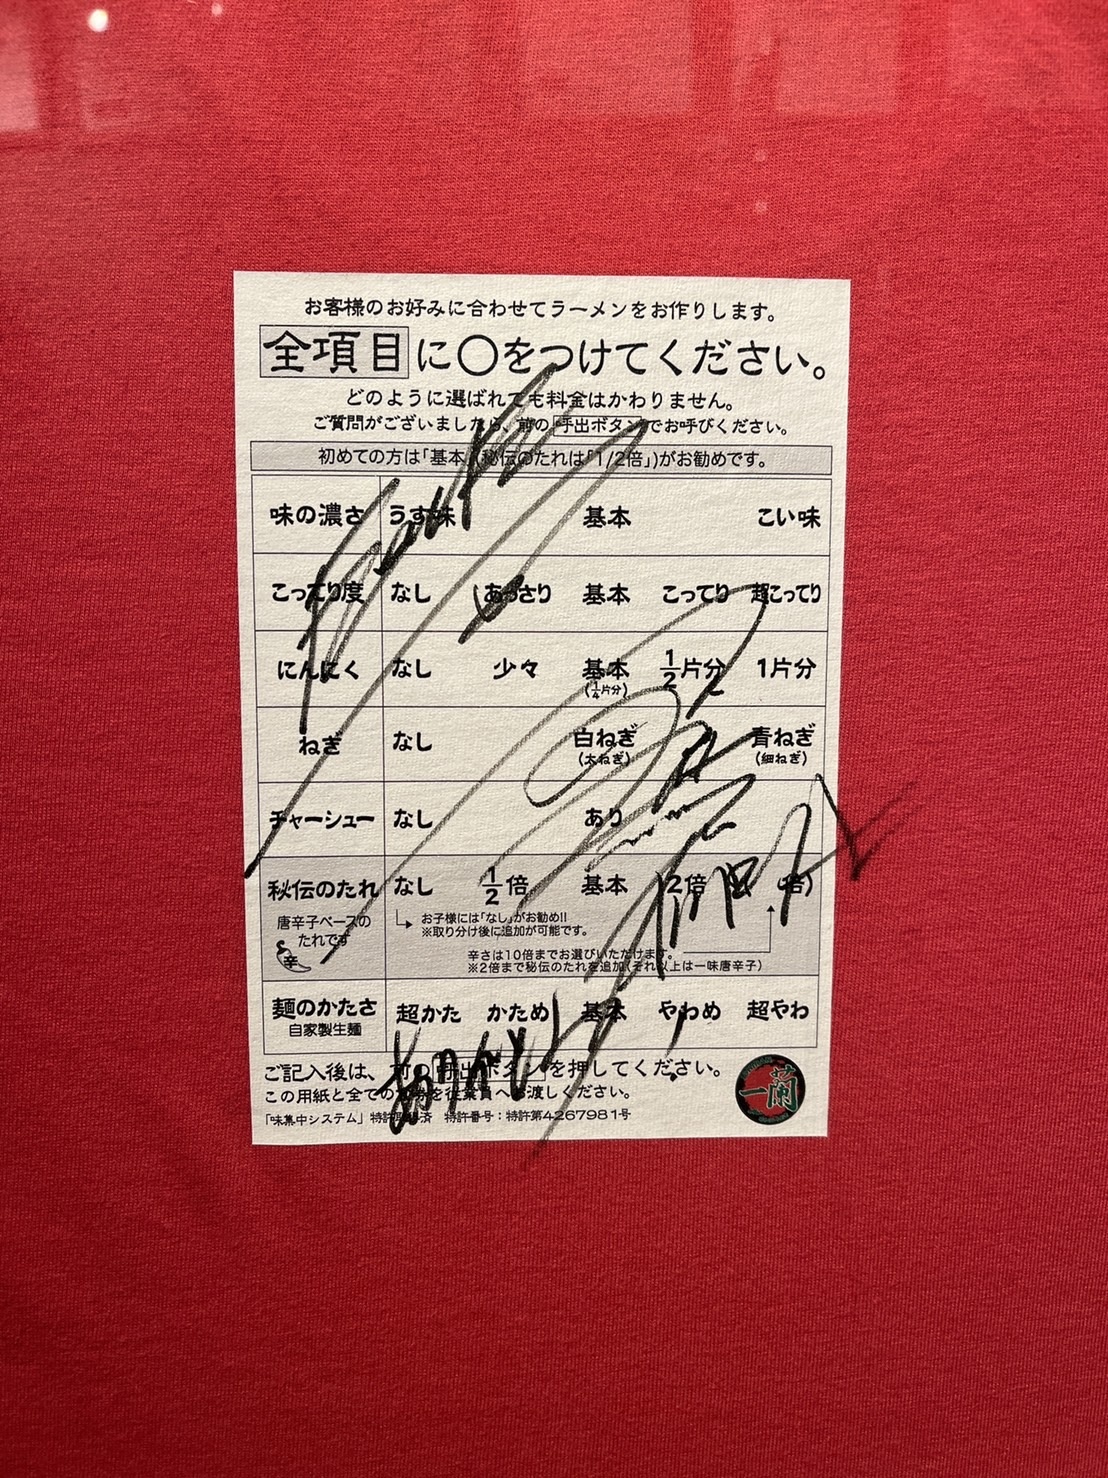 お客様のお好みに合わせてラーメンをお作りします。
全項目に○をつけてください。
どのように選ばれても料金はかわりません。
ご質問がございましたら、前の呼出ボタンでお呼びください。
初めての方は「基本」(秘伝のたれは「1/2倍」)がお勧めです。
味の濃さ うす味 基本 こい味
こってり度 なし あっさり 基本 こってり 超こってり
にんにく なし 少々 基本 1/2片分 1片分
(1/4片分)
ねぎ なし 白ねぎ 青ねぎ
(太ねぎ) (細ねぎ)
チャーシュー なし あり
秘伝のたれ なし 1/2倍 基本 2倍 ( 倍)
唐辛子ベースの
たれです
辛
お子様には「なし」がお勧め!!
※取り分け後に追加が可能です。
辛さは10倍までお選びいただけます。
※2倍まで秘伝のたれを追加(それ以上は一味唐辛子)
麺のかたさ 超かた かため 基本 やわめ 超やわ
自家製生麺
ご記入後は、前の呼出ボタンを押してください。
この用紙と全ての食券を従業員へお渡しください。
「味集中システム」特許取得済 特許番号：特許第4267981号
一蘭
ありがとう